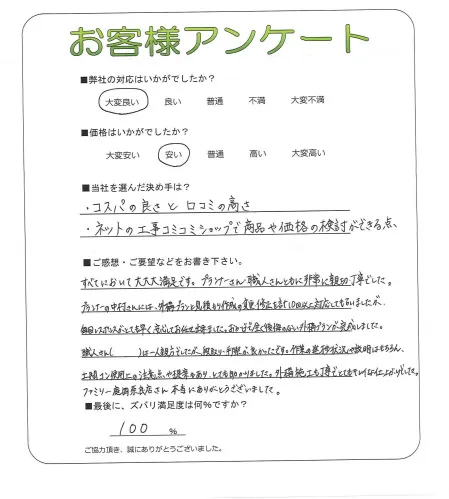 お客様アンケート
■弊社の対応はいかがでしたか？
大変良い 良い 普通 不満 大変不満
■価格はいかがでしたか？
大変安い 安い 普通 高い 大変高い
■当社を選んだ決め手は？
・コスパの良さと口コミの高さ
・ネットの工事コミコミショップで商品や価格の検討ができる点、
■ご感想・ご要望などをお書き下さい。
すべてにおいて大大大満足です。プランナーさん・職人さんともに非常に親切丁寧でした。
プランナーの中村さんには、外構プランと見積もり作成の変更・修正を計10回以上対応してもらいましたが、
毎回レスポンスがとても早く安心してお任せ出来ました。おかげで全く後悔のない外構プランが完成しました。
職人さん( )は一人親方でしたが、段取り・手際が良かったです。作業の進捗状況や説明はもちろん、
土間コン使用上の注意点や提案もあり、とても助かりました。外構施工も丁寧でとてもキレイな仕上がりでした。
ファミリー庭岡奈良店さん本当にありがとうございました。
■最後に、ズバリ満足度は何％ですか？
100 ％
ご協力頂き、誠にありがとうございました。